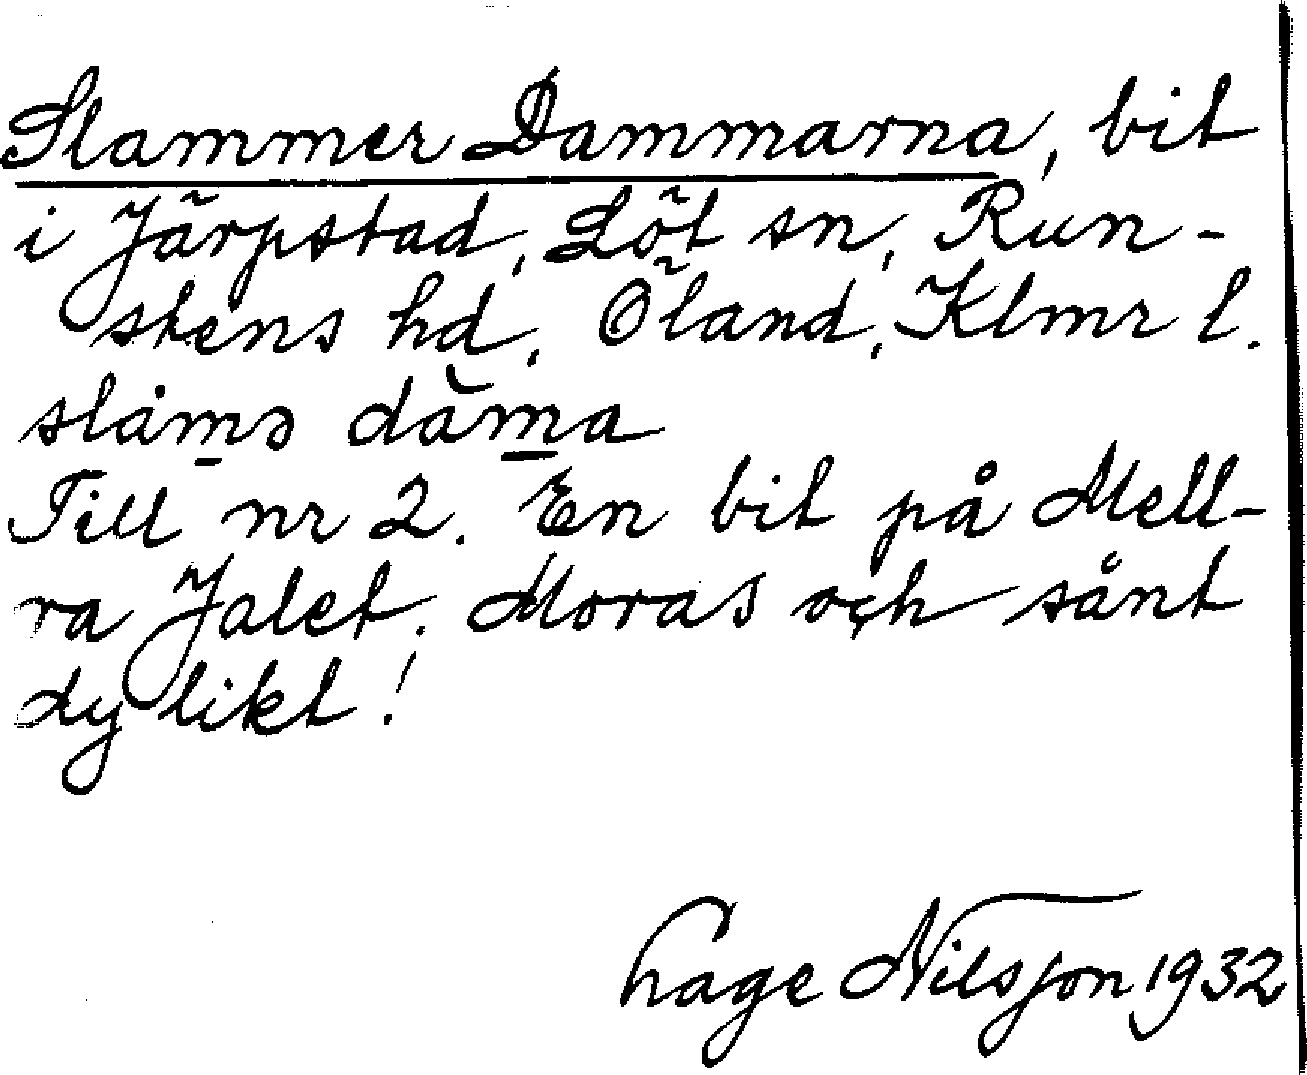 Slammer Dammarna, bit
i Järpstad, Löt sn, Run-
stens hd, Öland, Klmr l.
slåmə dåma
Till nr 2. En bit på Mell-
ra Jalet. Moras och sånt
dy likt!
hage Nilsson 1932